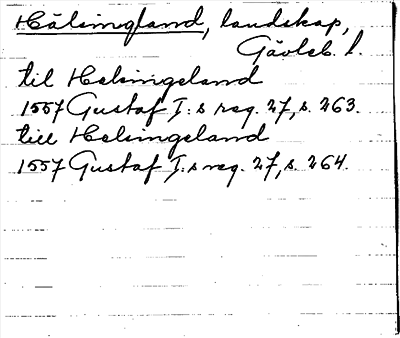 Hälsingland, landskap,
Gävleb. l.
til Helsingeland
1557 Gustaf I:s reg. 27, s. 263.
till Helsingeland
1557 Gustaf I:s reg. 27, s. 264.